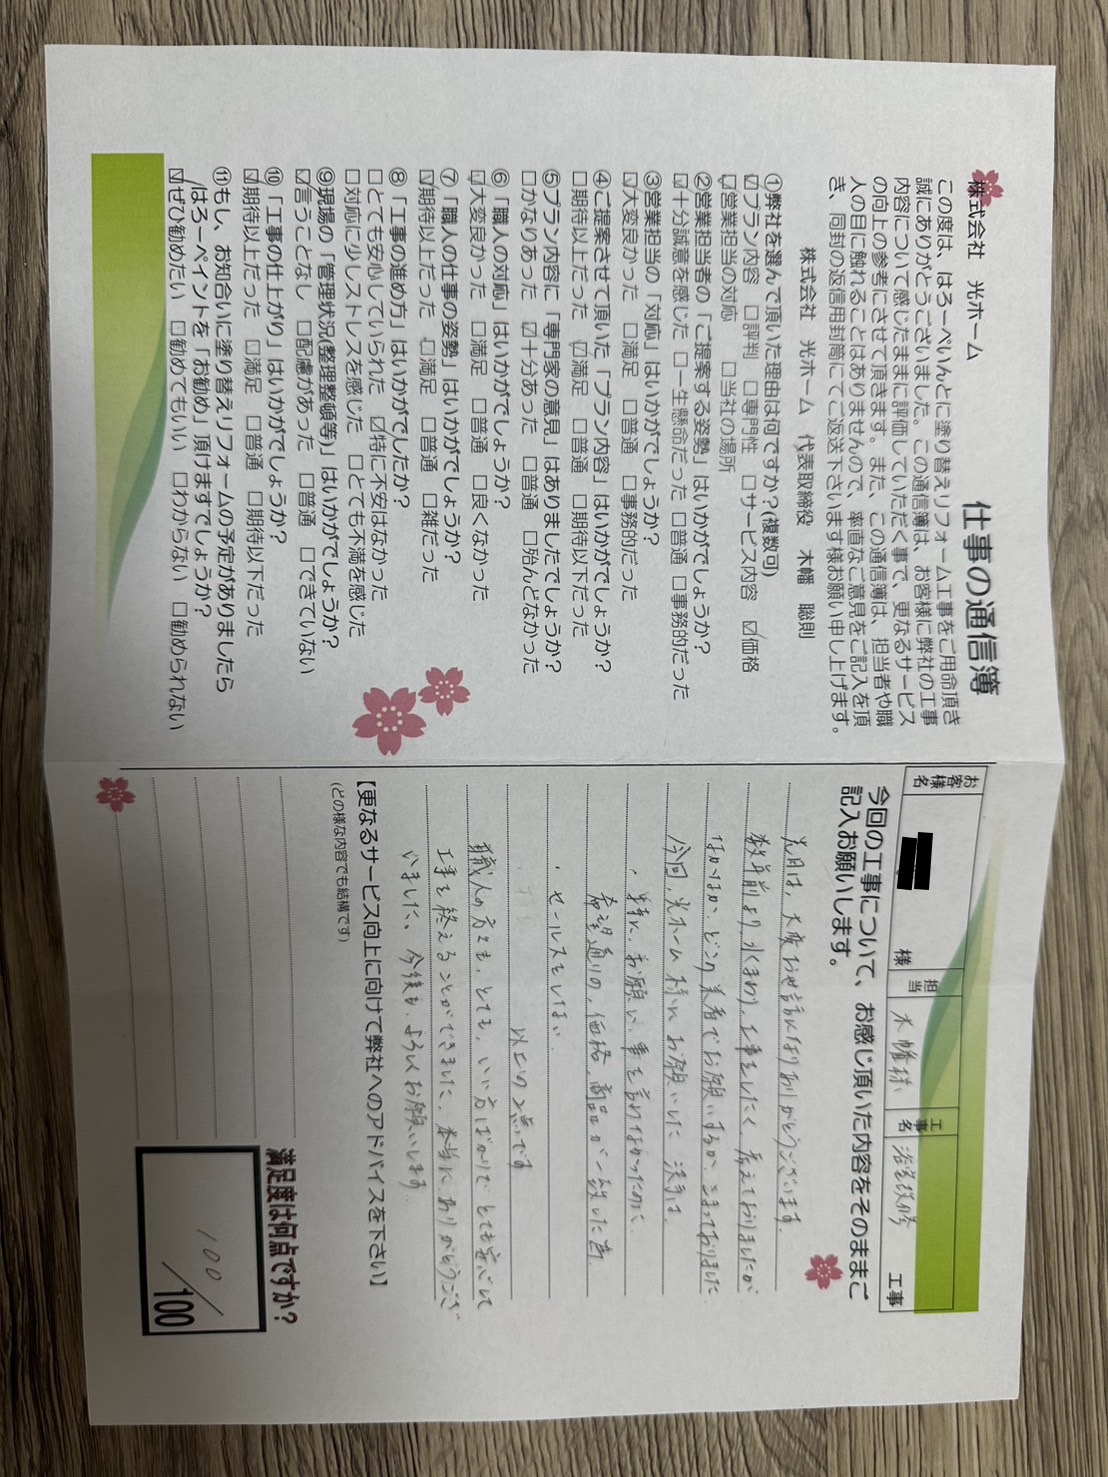 株式会社 光ホーム
仕事の通信簿
この度は、はろーぺいんとに塗り替えリフォーム工事をご用命頂き
誠にありがとうございました。この通信簿は、お客様に弊社の工事
内容について感じたままに評価していただく事で、更なるサービス
の向上の参考にさせて頂きます。また、この通信簿は、担当者や職
人の目に触れることはありませんので、率直なご意見をご記入を頂
き、同封の返信用封筒にてご返送下さいます様お願い申し上げます。
株式会社 光ホーム 代表取締役 木幡 聡則
①弊社を選んで頂いた理由は何ですか？(複数可)
☑プラン内容 □評判 □専門性 □サービス内容 ☑価格
☑営業担当の対応 □当社の場所
②営業担当者の「ご提案する姿勢」はいかがでしょうか？
☑十分誠意を感じた □一生懸命だった □普通 □事務的だった
③営業担当の「対応」はいかがでしょうか？
☑大変良かった □満足 □普通 □事務的だった
④ご提案させて頂いた「プラン内容」はいかがでしょうか？
□期待以上だった ☑満足 □普通 □期待以下だった
⑤プラン内容に「専門家の意見」はありましたでしょうか？
□かなりあった ☑十分あった □普通 □殆んどなかった
⑥「職人の対応」はいかがでしょうか？
☑大変良かった □満足 □普通 □良くなかった
⑦「職人の仕事の姿勢」はいかがでしょうか？
☑期待以上だった □満足 □普通 □雑だった
⑧「工事の進め方」はいかがでしたか？
□とても安心していられた ☑特に不安はなかった
□対応に少しストレスを感じた □とても不満を感じた
⑨現場の「管理状況(整理整頓等)」はいかがでしょうか？
☑言うことなし □配慮があった □普通 □できていない
⑩「工事の仕上がり」はいかがでしょうか？
☑期待以上だった □満足 □普通 □期待以下だった
⑪もし、お知合いに塗り替えリフォームの予定がありましたら
はろーペイントを「お勧め」頂けますでしょうか？
☑ぜひ勧めたい □勧めてもいい □わからない □勧められない
お客様名 様 担当 木幡様 工事名 浴室改修 工事
今回の工事について、お感じ頂いた内容をそのままご
記入お願いします。
先日は、大変お世話になりありがとうございます。
数年前より、水まわり、工事をしたく、考えておりましたが
なかなか、どこの業者でお願いするか、こまっておりました。
今回、光ホーム様にお願いした 決手は、
・特に、お願い、事を言わなかったのに
希望通りの、価格、商品が一致した為。
・セールスをしない。
以上の2点です
職人の方々も、とても、いい方ばかりで とても安心して
工事を終えることができました。本当に ありがとうござ
いました。今後も、よろしくお願いします。
【更なるサービス向上に向けて弊社へのアドバイスを下さい】
(どの様な内容でも結構です)
満足度は何点ですか？
100/100